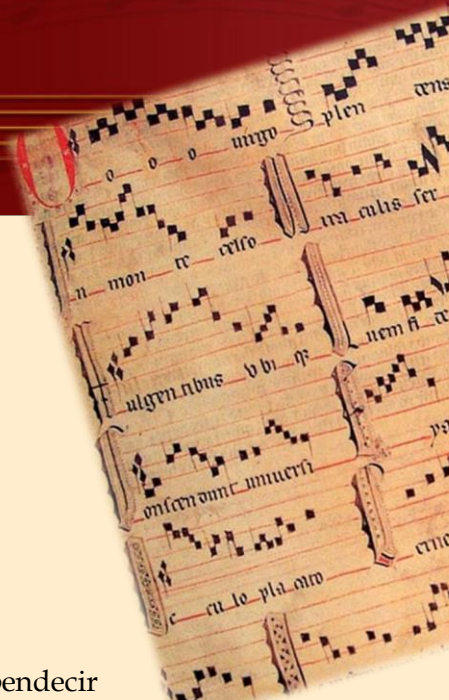 O o o o uirgo Splen dens
n mon te celso ira culis ser
ulgentibus vbi uem fi de
onscendunt uniuersi
cu lo pla cato
bendecir